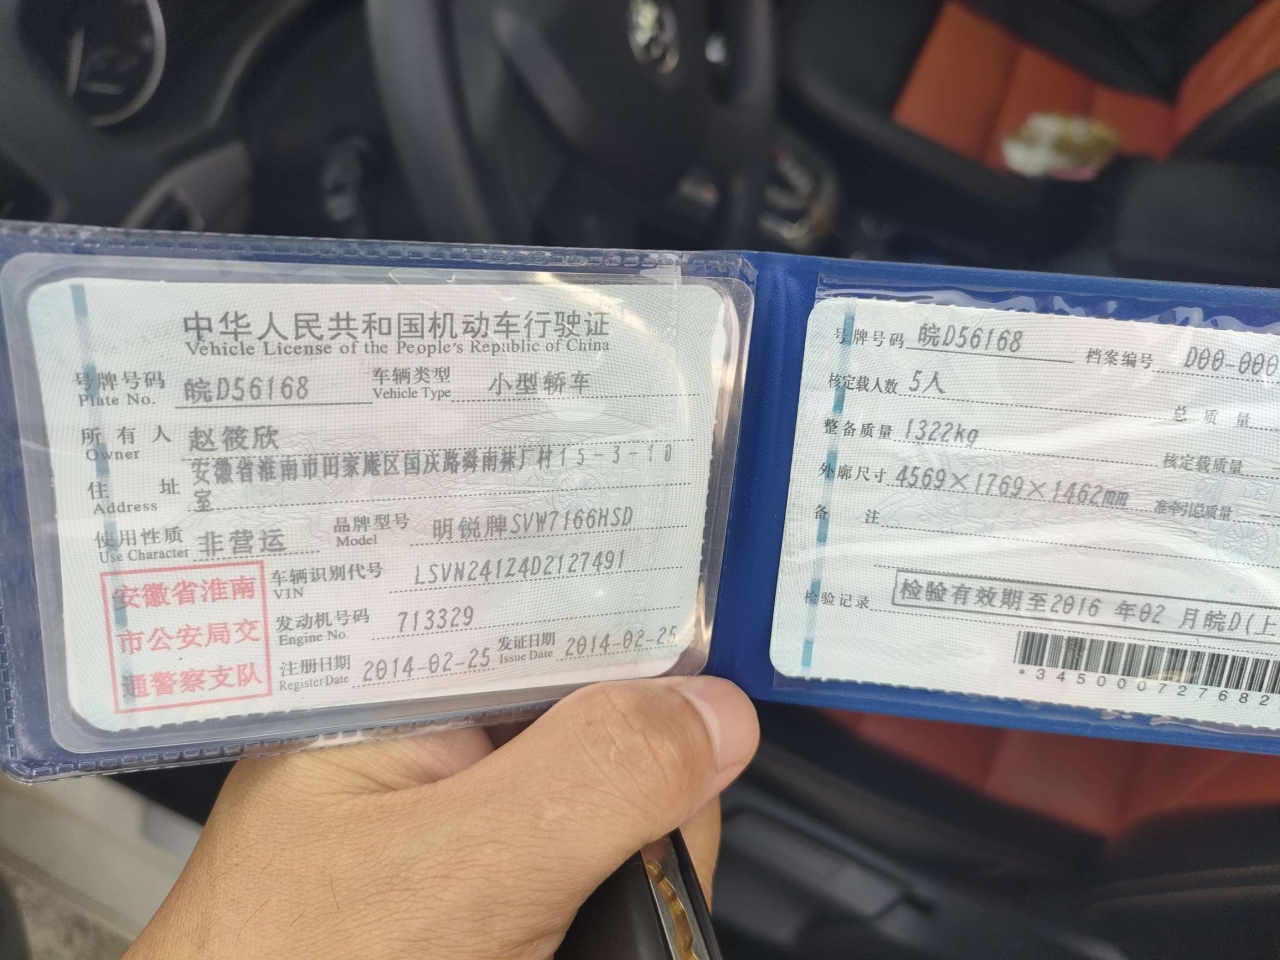 中华人民共和国机动车行驶证
Vehicle License of the People's Republic of China
号牌号码 皖D56168 车辆类型 小型轿车
Plate No. Vehicle Type
所有人 赵筱欣
Owner
安徽省淮南市田家庵区国庆路舜南袜厂村15-3-10
住址 室
Address
使用性质 非营运 品牌型号 明锐牌SVW7166HSD
Use Character Model
车辆识别代号 LSVN24124D2127491
VIN
发动机号码 713329
Engine No.
注册日期 2014-02-25 发证日期 2014-02-25
Register Date Issue Date
安徽省淮南
市公安局交
通警察支队
号牌号码 皖D56168 档案编号 D00-000
核定载人数 5人 总质量
整备质量 1322kg 核定载质量
外廓尺寸 4569×1769×1462mm 准牵引总质量
备注
检验记录 检验有效期至2016 年02 月皖D(上
*345000727682